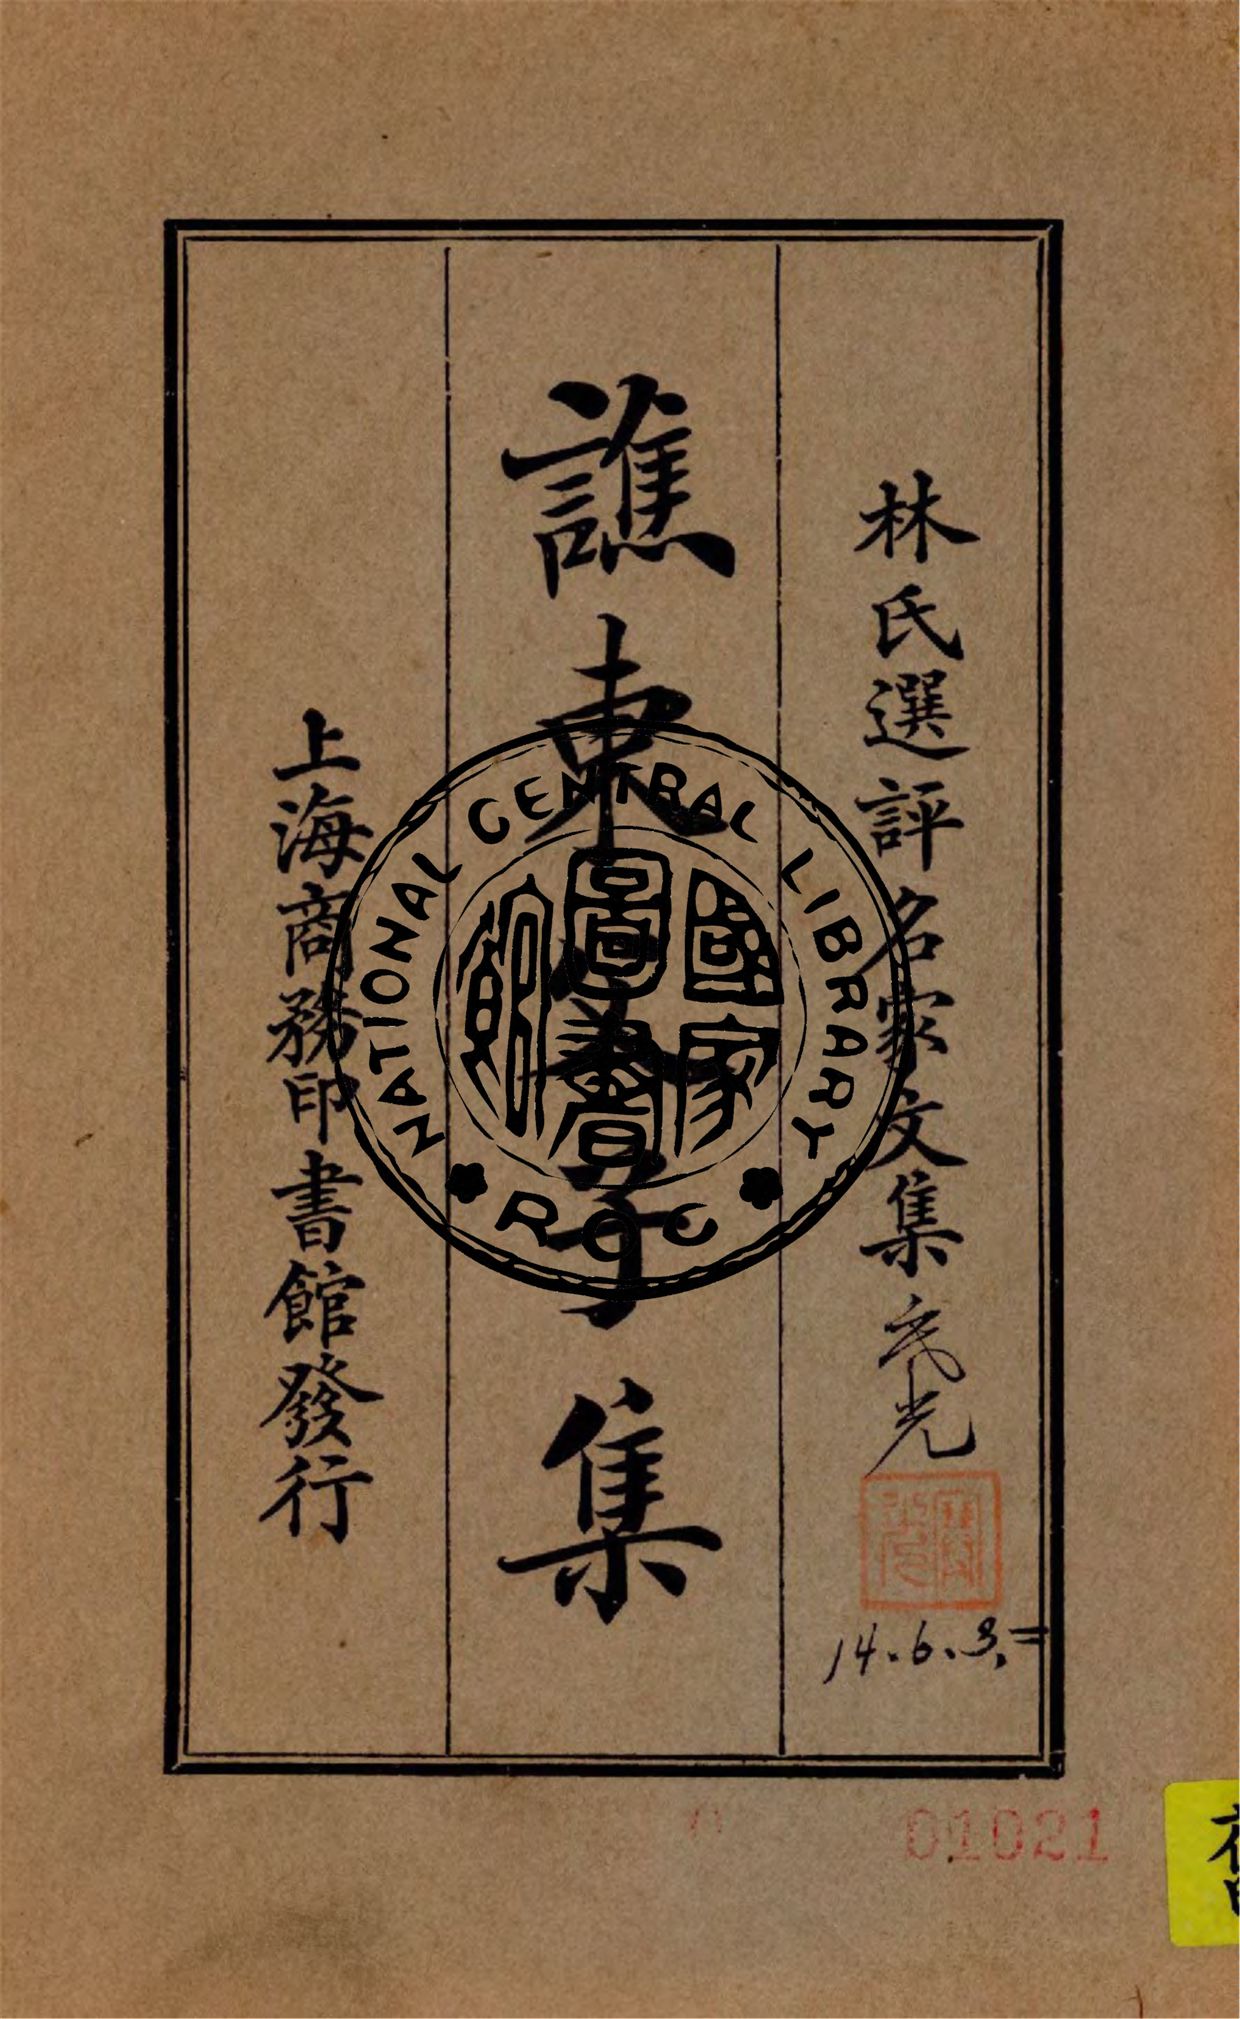 林氏選評名家文集
14.6.3.=
譙東父子集
上海商務印書館發行
NATIONAL CENTRAL LIBRARY
國家圖書館
ROC
01021